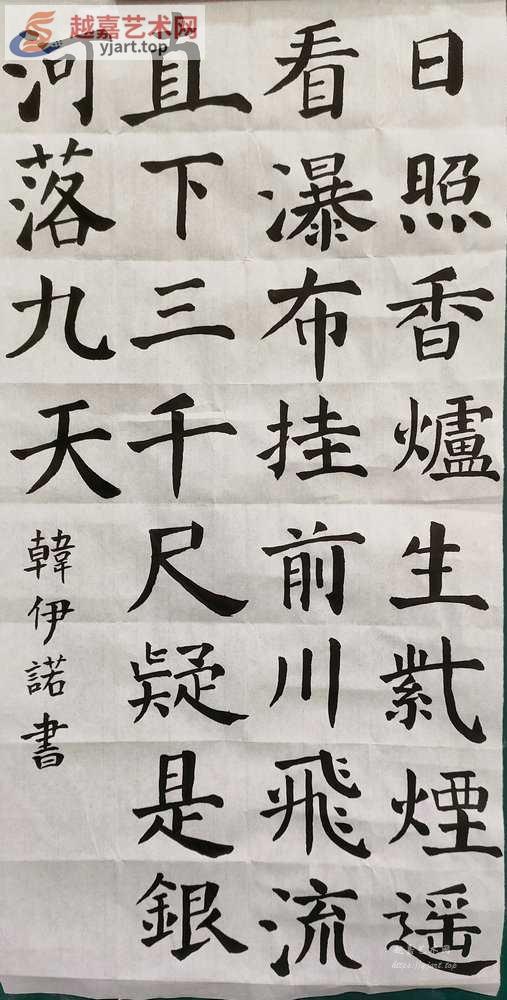 日照香爐生紫煙遥
看瀑布挂前川飛流
直下三千尺疑是銀
河落九天
韓伊諾書
越嘉艺术网
yjart.top
越嘉艺术网
https://yjart.top